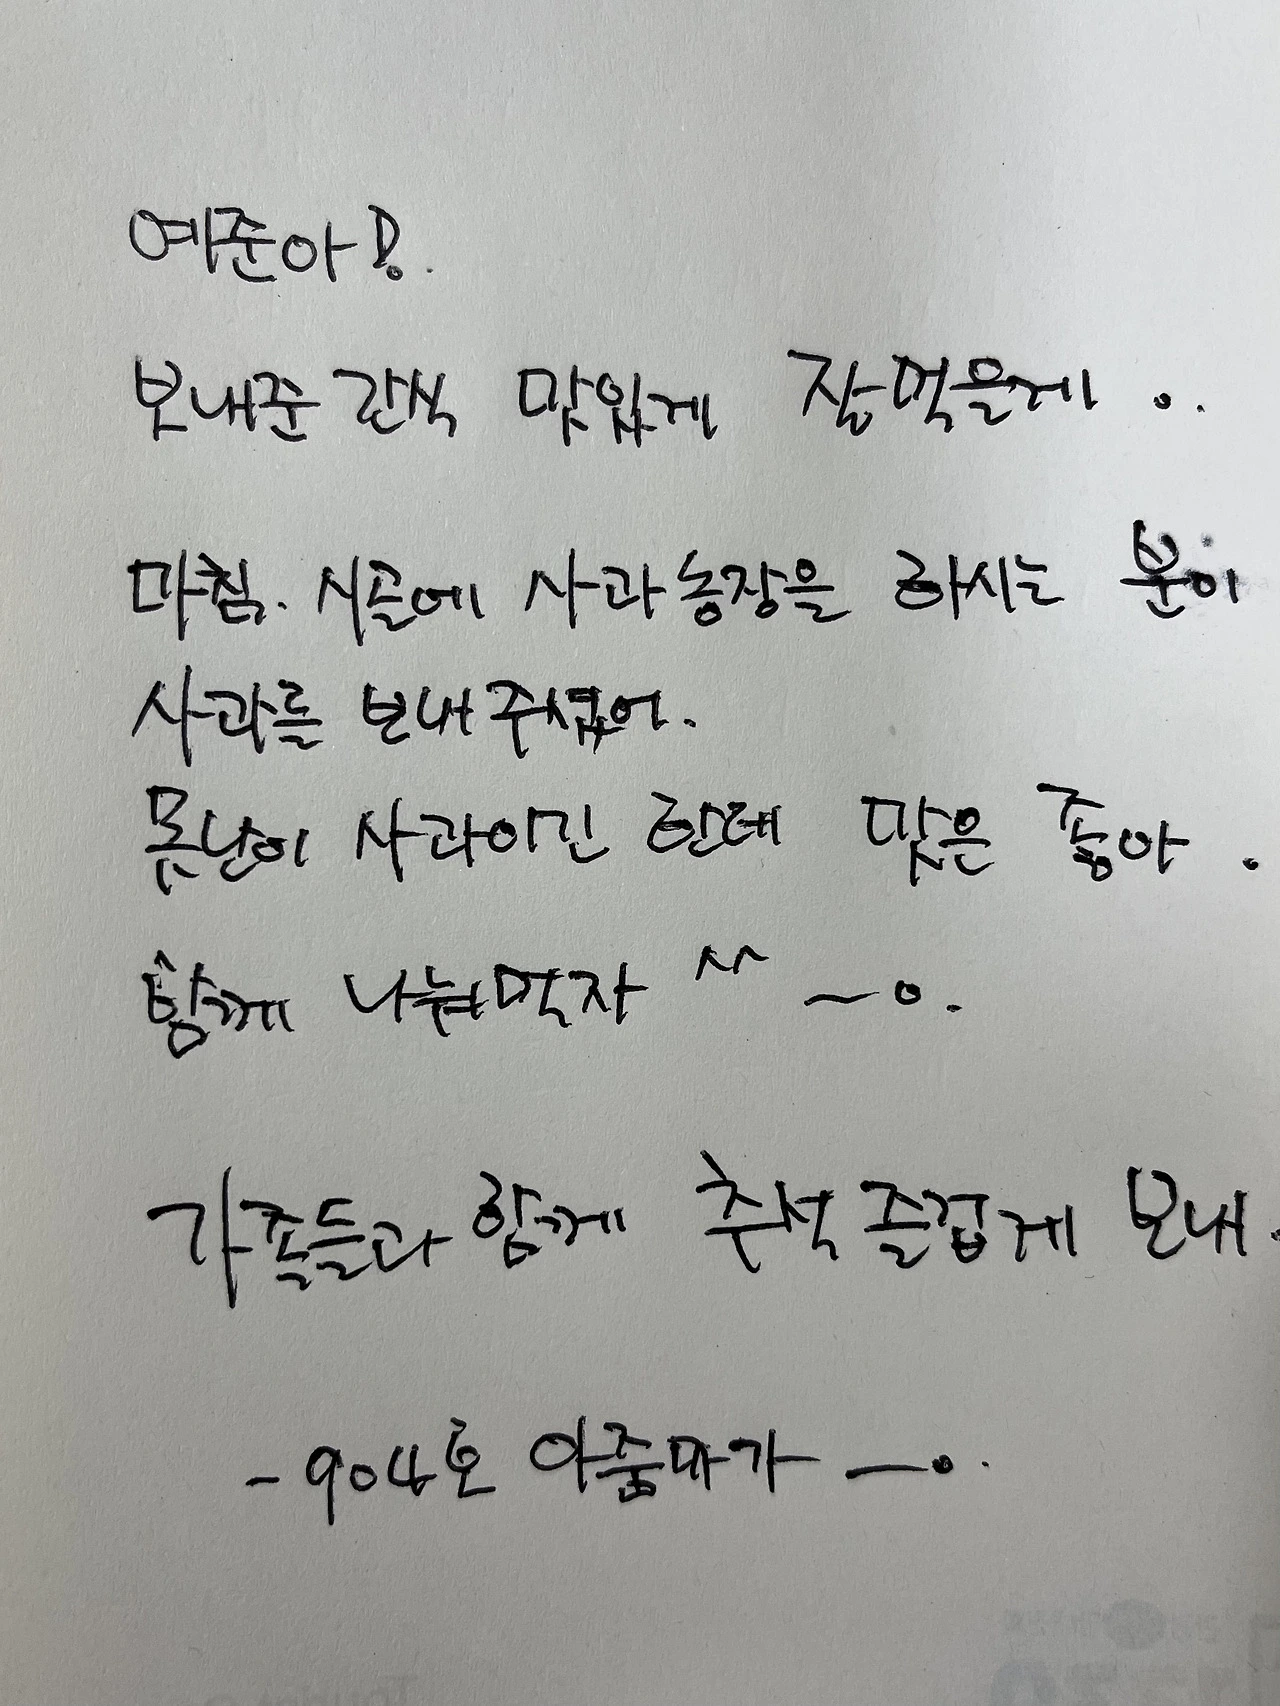 예준아!
보내준 간식 맛있게 잘먹을게.
마침. 시골에 사과농장을 하시는 분이
사과를 보내주셨어.
못난이 사과이긴 한데 맛은 좋아.
함께 나눠먹자 ^^ ~o.
가족들과 함께 추석 즐겁게 보내.
- 904호 아줌마가 —o.